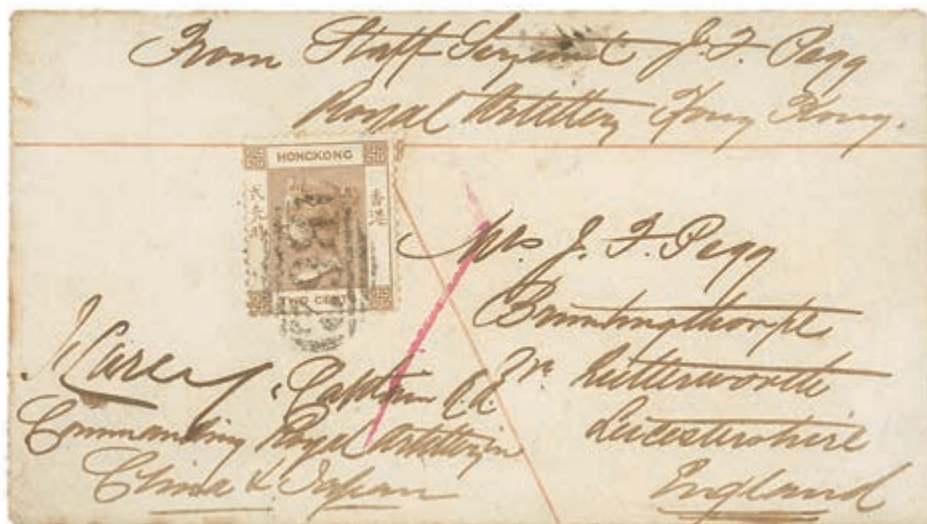 From Staff Serjeant J. F. Pegg
Royal Artillery Hong Kong.
HONGKONG
香港
TWO CENTS
Mrs J. F. Pegg
Bruntingthorpe
Nr Lutterworth
Leicestershire
England
Captain R.A.
Commanding Royal Artillery in
China & Japan